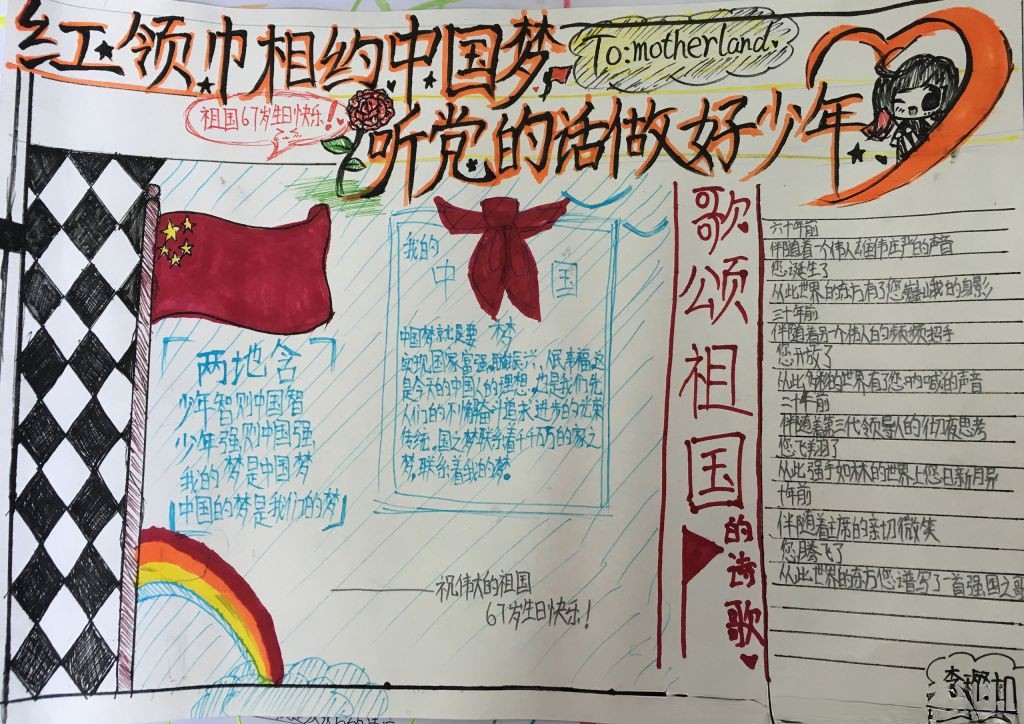 红领巾相约中国梦
To:motherland.
祖国67岁生日快乐!
听党的话做好少年
两地含
少年智则中国智
少年强则中国强
我的梦是中国梦
中国的梦是我们的梦
我的
中国
梦
中国梦就是要
实现国家富强、民族振兴、人民幸福,这
是今天的中国人的理想,也是我们先
人们的不懈奋斗追求进步的光荣
传统,国之梦联系着千千万万的家之
梦,联系着我的梦。
祝伟大的祖国
67岁生日快乐!
歌颂祖国的诗歌
六十年前
伴随着一个伟人雄伟庄严的声音
您诞生了
从此世界的东方有了您巍峨的身影
三十年前
伴随着另一个伟人的频频招手
您开放了
从此多彩的世界有了您的声音
二十年前
伴随着第三代领导人的日夜思考
您飞翔了
从此强手如林的世界上您日新月异
十年前
伴随着主席的亲切微笑
您腾飞了
从此世界的东方您谱写了一首强国之歌